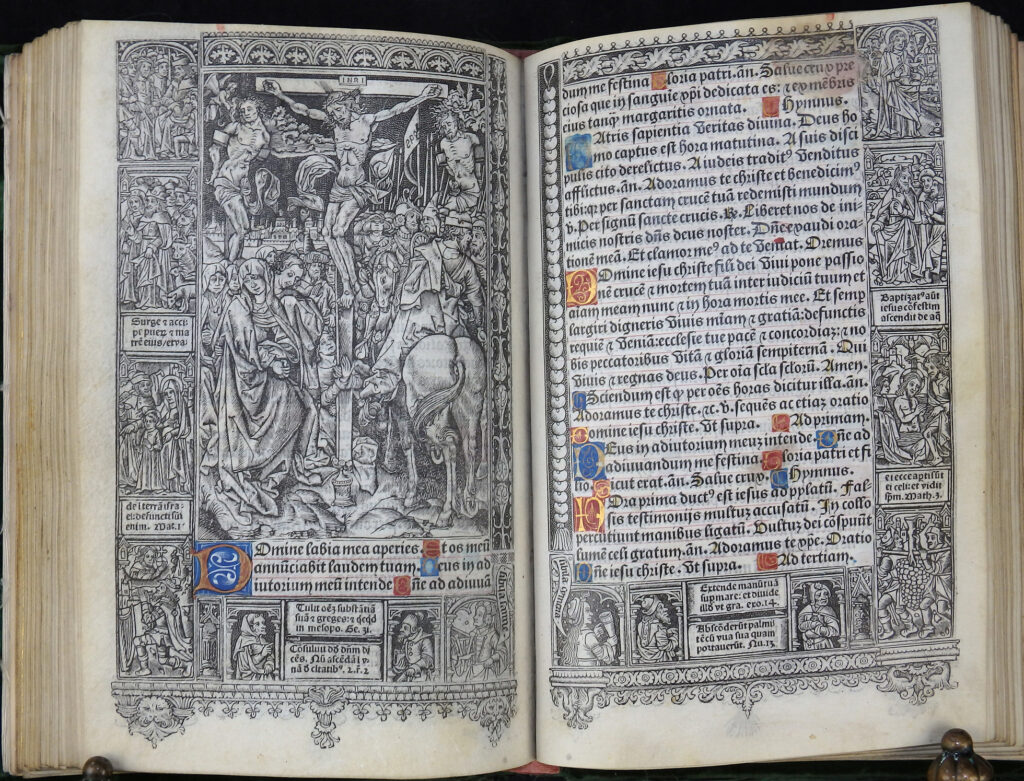 INRI
Surge ⁊ acci
pe pueꝝ ⁊ ma
trē eius / et va
de ī terrā isra
el: defuncti sūt
enim. Mat. i
Domine labia mea aperies. Et os meū
annūciabit laudem tuam. Deus in ad
iutorium meū intende Dñe ad adiuuā
Tulit oēz substātiā
suā ⁊ greges: ⁊ qcqd
in mesopo. Ge. 31.
Cōsuluit dd dñm di
cēs. Nū ascēdā ī v
nā d ciuitatibꝰ. 2. ẜ. 2
dum me festina Gloria patri. añ. Salue crux pre
ciosa que in sanguie xp̄i dedicata es: ⁊ ex mēbris
eius tanqꝫ margaritis ornata. Hymnus.
PAtris sapientia veritas diuina. Deus ho
mo captus est hora matutina. A suis disci
pulis cito derelictus. A iudeis traditꝰ venditus
afflictus. añ. Adoramus te christe et benedicimꝰ
tibi: qꝛ per sanctam crucē tuā redemisti mundum
v. Per signū sancte crucis. R̃. Liberet nos de ini
micis nostris dñs deus noster. Dñe exaudi ora
tionē meā. Et clamor meꝰ ad te veniat. Oremus
DOmine iesu christe fili dei viui pone passio
nē crucē ⁊ mortem tuā inter iudiciū tuum et
aīam meam nunc ⁊ in hora mortis mee. Et semp
largiri digneris viuis mīam ⁊ gratiā: defunctis
requiē ⁊ veniā: ecclesie tue pacē ⁊ concordiaꝫ: ⁊ no
bis peccatoribus vitā ⁊ gloriā sempiternā. Qui
viuis ⁊ regnas deus. Per oīa scła scłorū. Amen.
Sciendum est qꝫ per oēs horas dicitur illa. añ.
Adoramus te christe. ⁊c. v. sequēs ac etiaꝫ oratio
Domine iesu christe. Vt supra. Ad primam.
DEus in adiutorium meuꝫ intende. Dñe ad
adiuuandum me festina. Gloria patri et fi
lio. Sicut erat. añ. Salue crux. Hymnus.
HOra prima ductꝰ est iesus ad pylatū. Fal
sis testimonijs multuꝫ accusatū. In collo
percutiunt manibus ligatū. Vultuꝫ dei cōspuūt
lumē celi gratum. añ. Adoramus te xp̄e. Oratio
Dñe iesu christe. Vt supra. Ad tertiam.
Baptizatꝰ aūt
iesus cōfestim
ascendit de aq̄
et ecce apti sūt
ei celi: et vidit
spm̄. Math. 3.
Extende manū tuā
sup mare: et diuide
illd vt gra. exo. 14.
Abscēderūt palmi
tē cū vua sua quam
portauerūt. Nu. 13